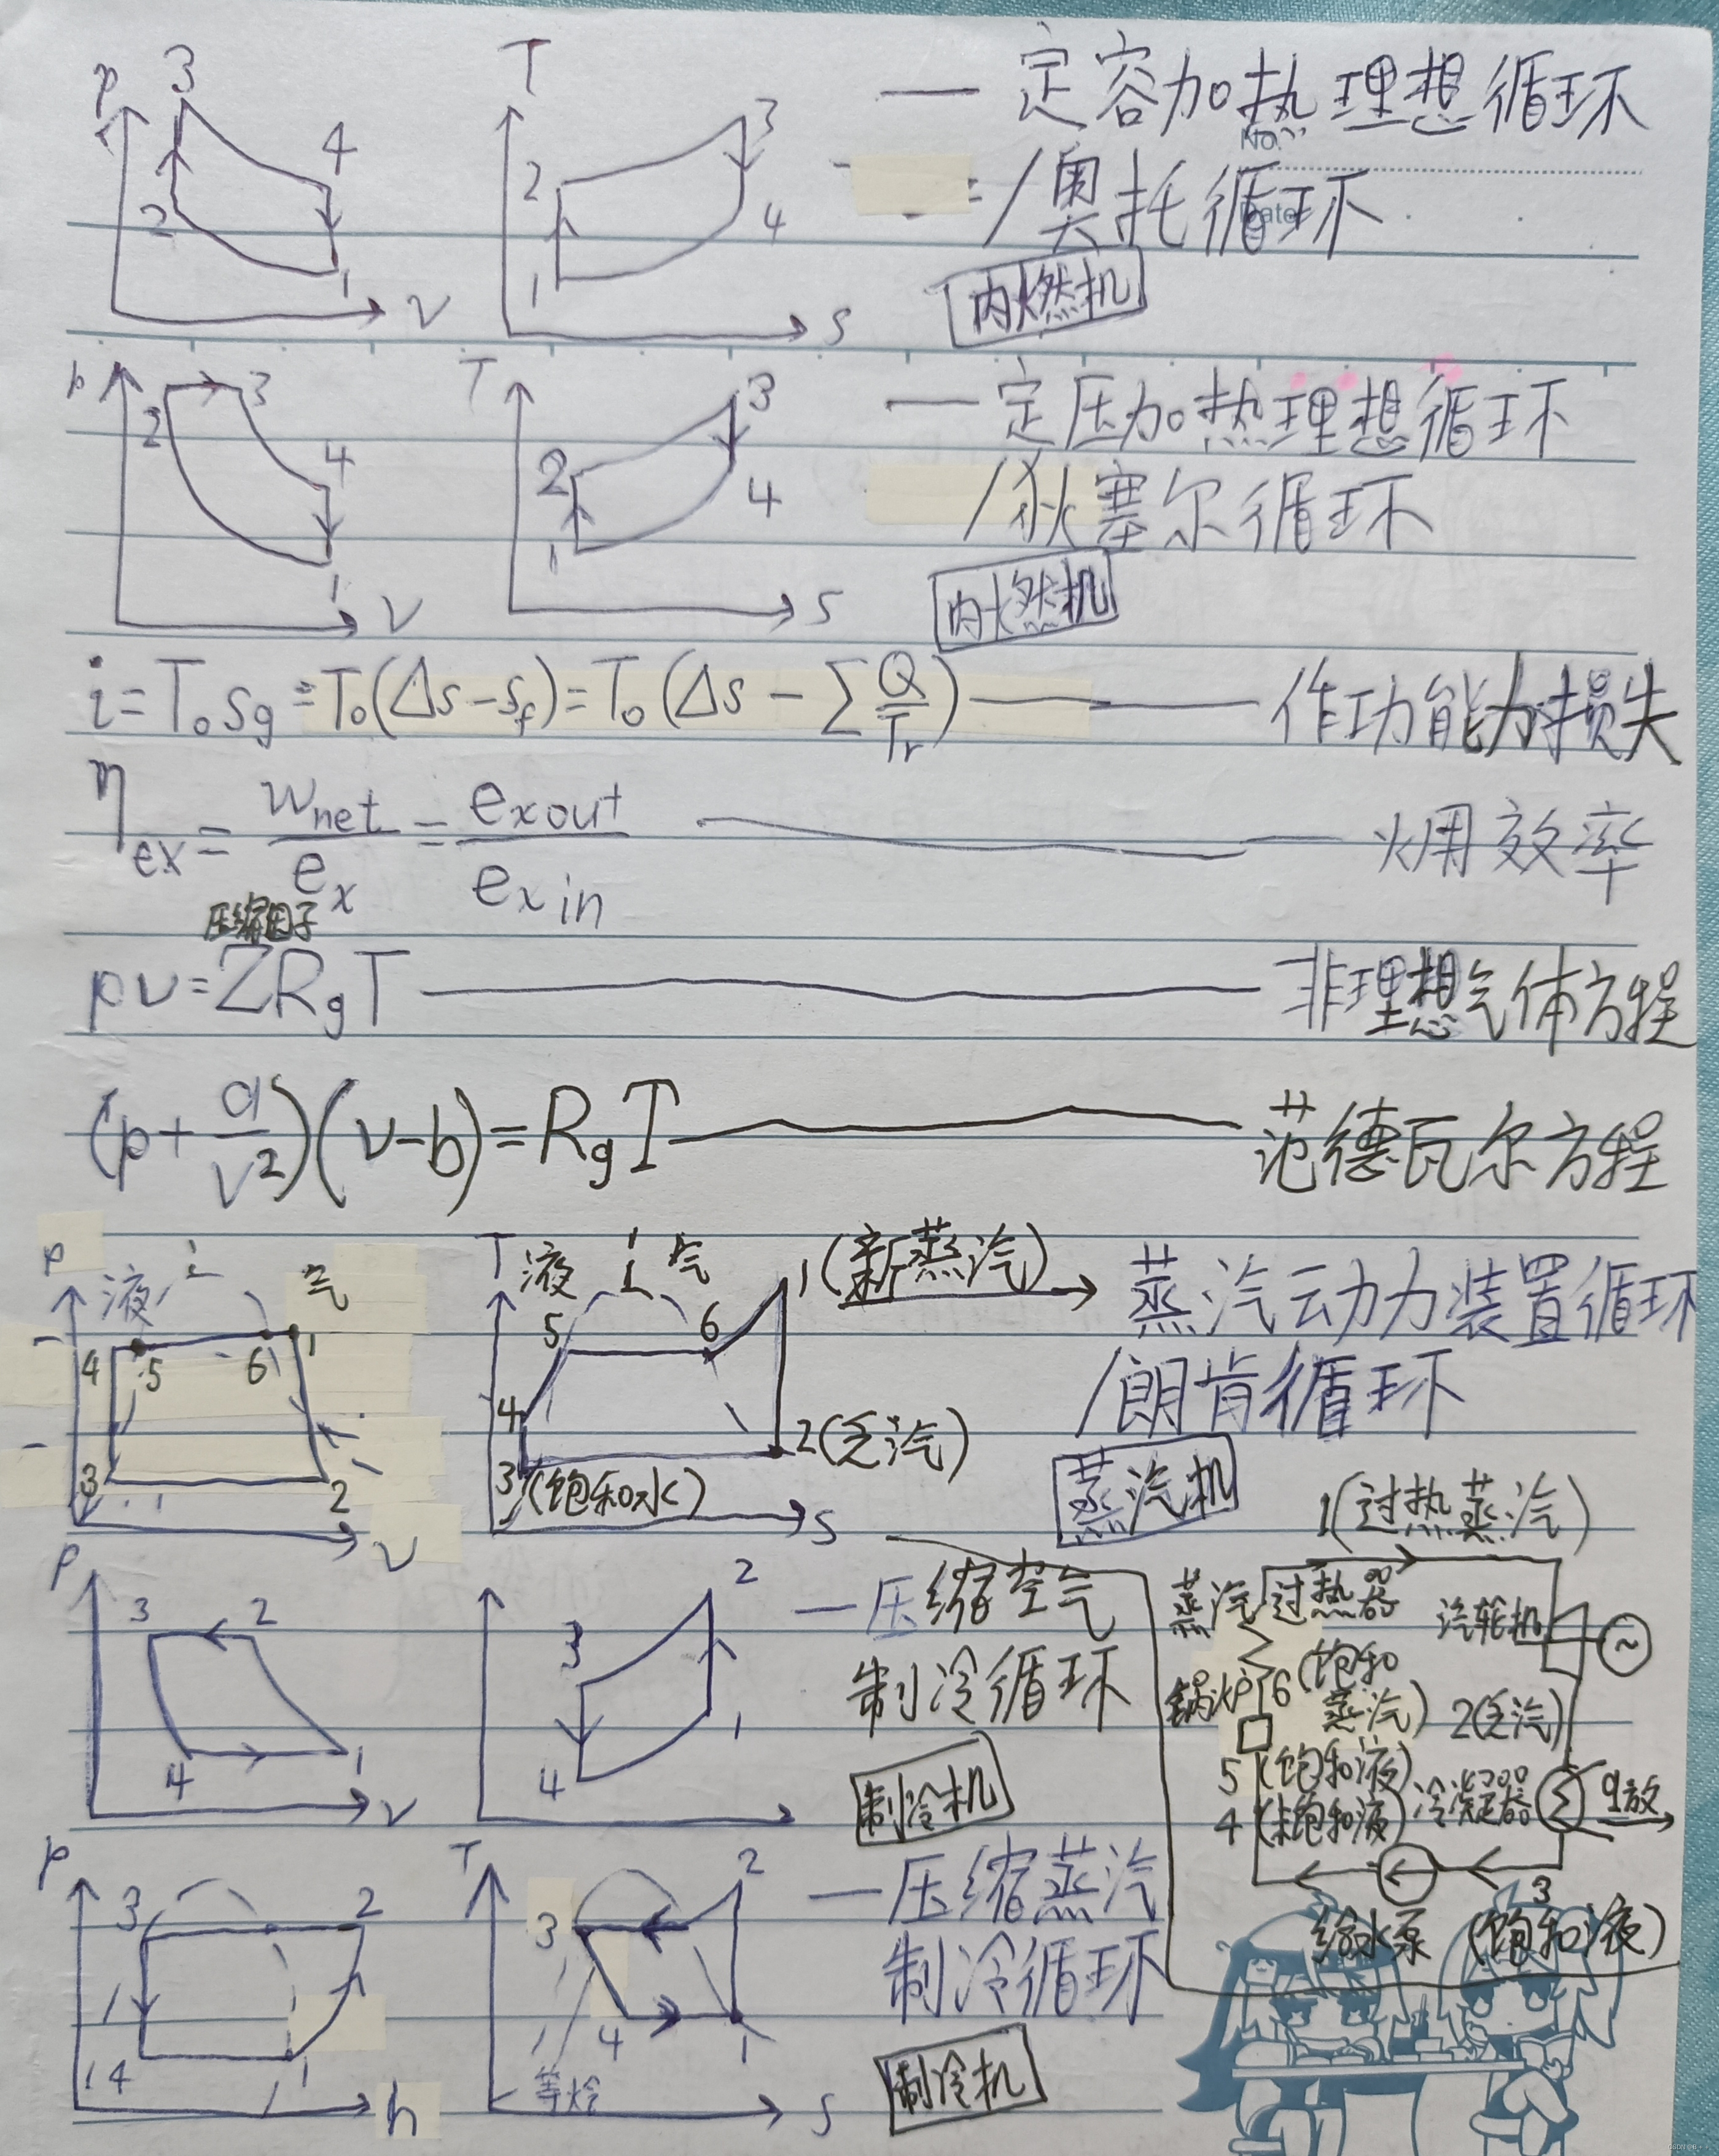 p 3 4 2 1 v
T 3 2 4 1 s
— 定容加热理想循环
No.
/奥托循环
Date
内燃机
p 2 3 4 1 v
T 3 2 4 1 s
— 定压加热理想循环
/狄塞尔循环
内燃机
i=T₀sg=T₀(Δs-sf)=T₀(Δs-∑Q/Tr) —— 作功能力损失
ηex=wnet/ex=exout/exin —— 㶲效率
压缩因子
pv=ZRgT —— 非理想气体方程
(p+a/v²)(v-b)=RgT —— 范德瓦尔方程
p 液 气 4 5 6 1 3 2 v
T 液 气 1(新蒸汽) 5 6 4 2(乏汽) 3(饱和水) s
蒸汽动力装置循环
/朗肯循环
蒸汽机
1(过热蒸汽)
蒸汽过热器
汽轮机 ~
锅炉 6(饱和蒸汽)
2(乏汽)
5(饱和液)
4(未饱和液) 冷凝器 q放
3
给水泵 (饱和液)
p 3 2 4 1 v
2 3 1 4
— 压缩空气
制冷循环
制冷机
p 3 2 4 1 h
T 2 3 4 1 等焓 s
— 压缩蒸汽
制冷循环
制冷机